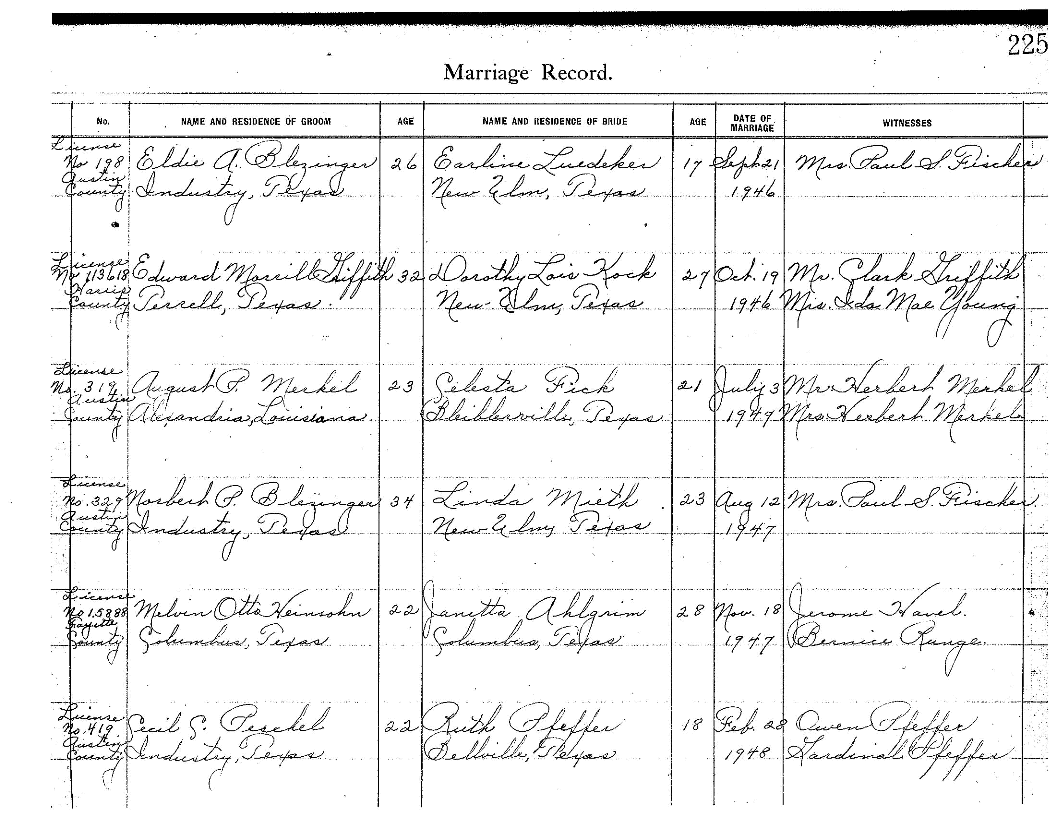 225
Marriage Record.
No. NAME AND RESIDENCE OF GROOM AGE NAME AND RESIDENCE OF BRIDE AGE DATE OF MARRIAGE WITNESSES
License No 198 Austin County
Eldie A. Blezinger 26 Earline Luedeker 17 Sept. 21 Mrs. Paul S. Fischer
Industry, Texas New Ulm, Texas 1946
License No 113618 Harris County
Edward Morrill Griffith 32 Dorothy Lois Kock 27 Oct. 19 Mr. Clark Griffith
Terrell, Texas. New Ulm, Texas 1946 Mrs. Ida Mae Young
License No. 319 Austin County
August P. Merkel 23 Selesta Fick 21 July 3 Mr. Herbert Merkel
Alexandria, Louisiana Bleiblerville, Texas 1947 Mrs. Herbert Merkel
License No. 329 Austin County
Norbert P. Blezinger 34 Linda Mieth 23 Aug 12 Mrs. Paul S. Fischer
Industry, Texas New Ulm, Texas 1947
License No 15888 Fayette County
Melvin Otto Heinsohn 22 Janetta Ahlgrim 28 Nov. 18 Jerome Havel.
Columbus, Texas Columbus, Texas 1947 Bernice Runge.
License No. 419 Austin County
Cecil G. Peschel 22 Ruth Pfeffer 18 Feb. 28 Owen Pfeffer
Industry, Texas Bellville, Texas 1948 Hardinal Pfeffer